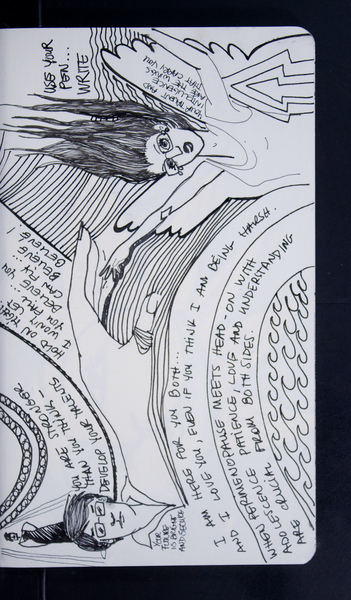 USE YOUR
PEN...
WRITE
YOUR TALENT AND
INTELLIGENCE
ARE THE WINGS
THAT CARRY YOU
HOLD ON TIGHT
I WON'T LET
YOU FALL
BELIEVE... YOU
CAN FLY
BELIEVE
BELIEVE
BELIEVE!
YOU ARE STRONGER
THAN YOU THINK...
DEVELOP YOUR TALENTS
YOUR
FUTURE
IS BRIGHT
AND SECURE
I AM HERE FOR YOU BOTH...
AND I LOVE YOU, EVEN IF YOU THINK I AM BEING HARSH.
WHEN PERIMENOPAUSE MEETS HEAD-ON WITH
ADOLESCENCE PATIENCE, LOVE AND UNDERSTANDING
ARE CRUCIAL FROM BOTH SIDES.